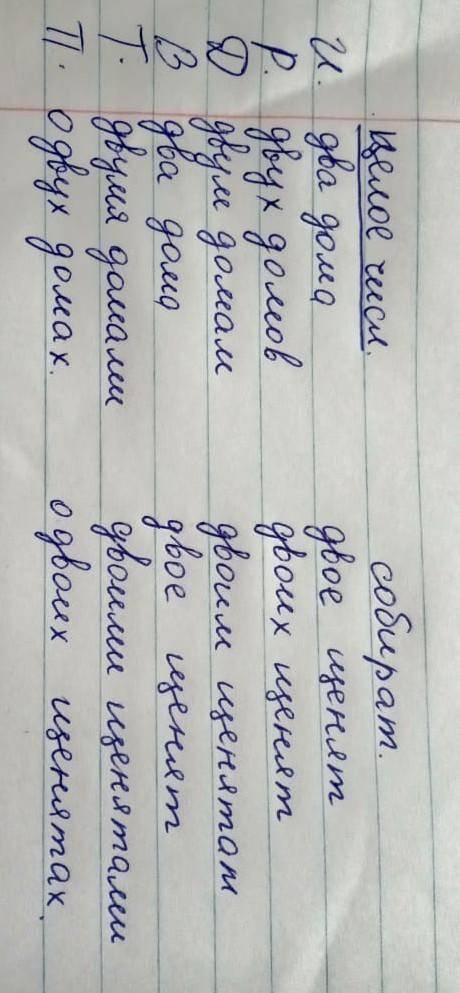 целое числ. собират.
И. два дома двое щенят
Р. двух домов двоих щенят
Д двум домам двоим щенятам
В два дома двое щенят
Т. двумя домами двоими щенятами
П. о двух домах. о двоих щенятах.